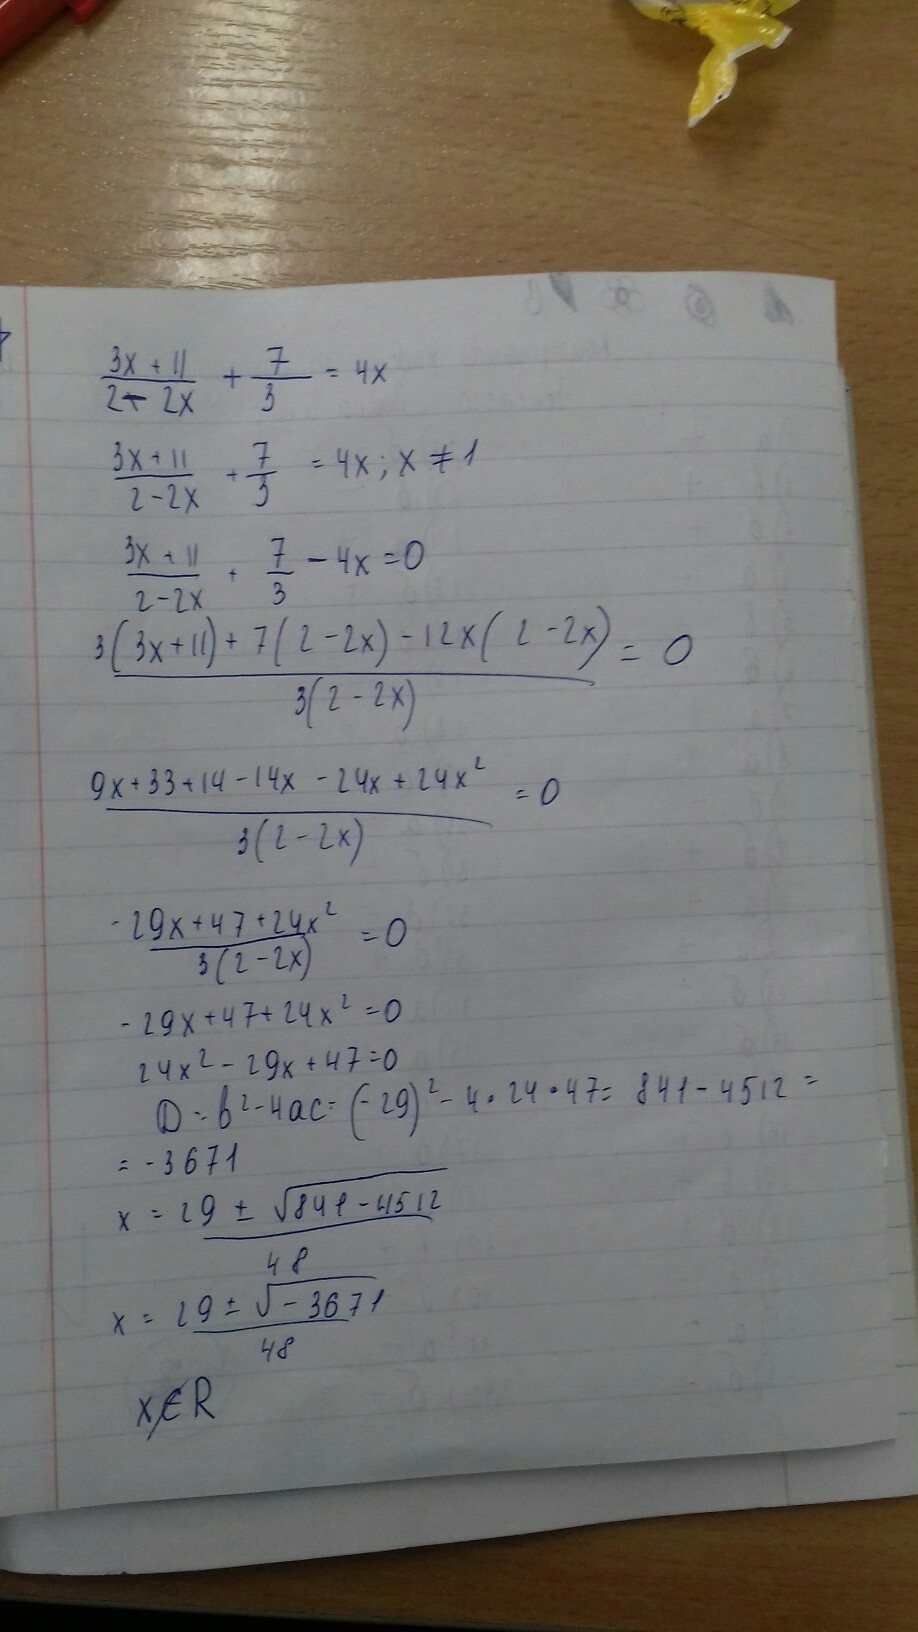 3x + 11 / 2 - 2x + 7/3 = 4x
3x + 11 / 2 - 2x + 7/3 = 4x; x ≠ 1
3x + 11 / 2 - 2x + 7/3 - 4x = 0
3(3x + 11) + 7(2 - 2x) - 12x(2 - 2x) / 3(2 - 2x) = 0
9x + 33 + 14 - 14x - 24x + 24x² / 3(2 - 2x) = 0
-29x + 47 + 24x² / 3(2 - 2x) = 0
-29x + 47 + 24x² = 0
24x² - 29x + 47 = 0
D = b² - 4ac = (-29)² - 4 · 24 · 47 = 841 - 4512 =
= -3671
x = 29 ± √841 - 4512 / 48
x = 29 ± √-3671 / 48
x ∉ R